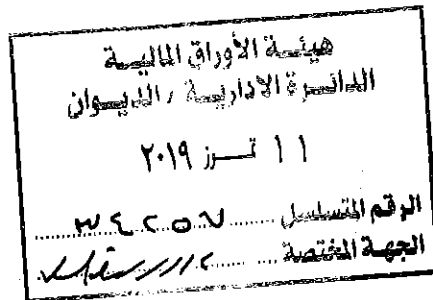 هيئة الأوراق المالية
الدائرة الادارية / الديوان
١١ تموز ٢٠١٩
الرقم المتسلسل ٣٤٢٥٧
الجهة المختصة